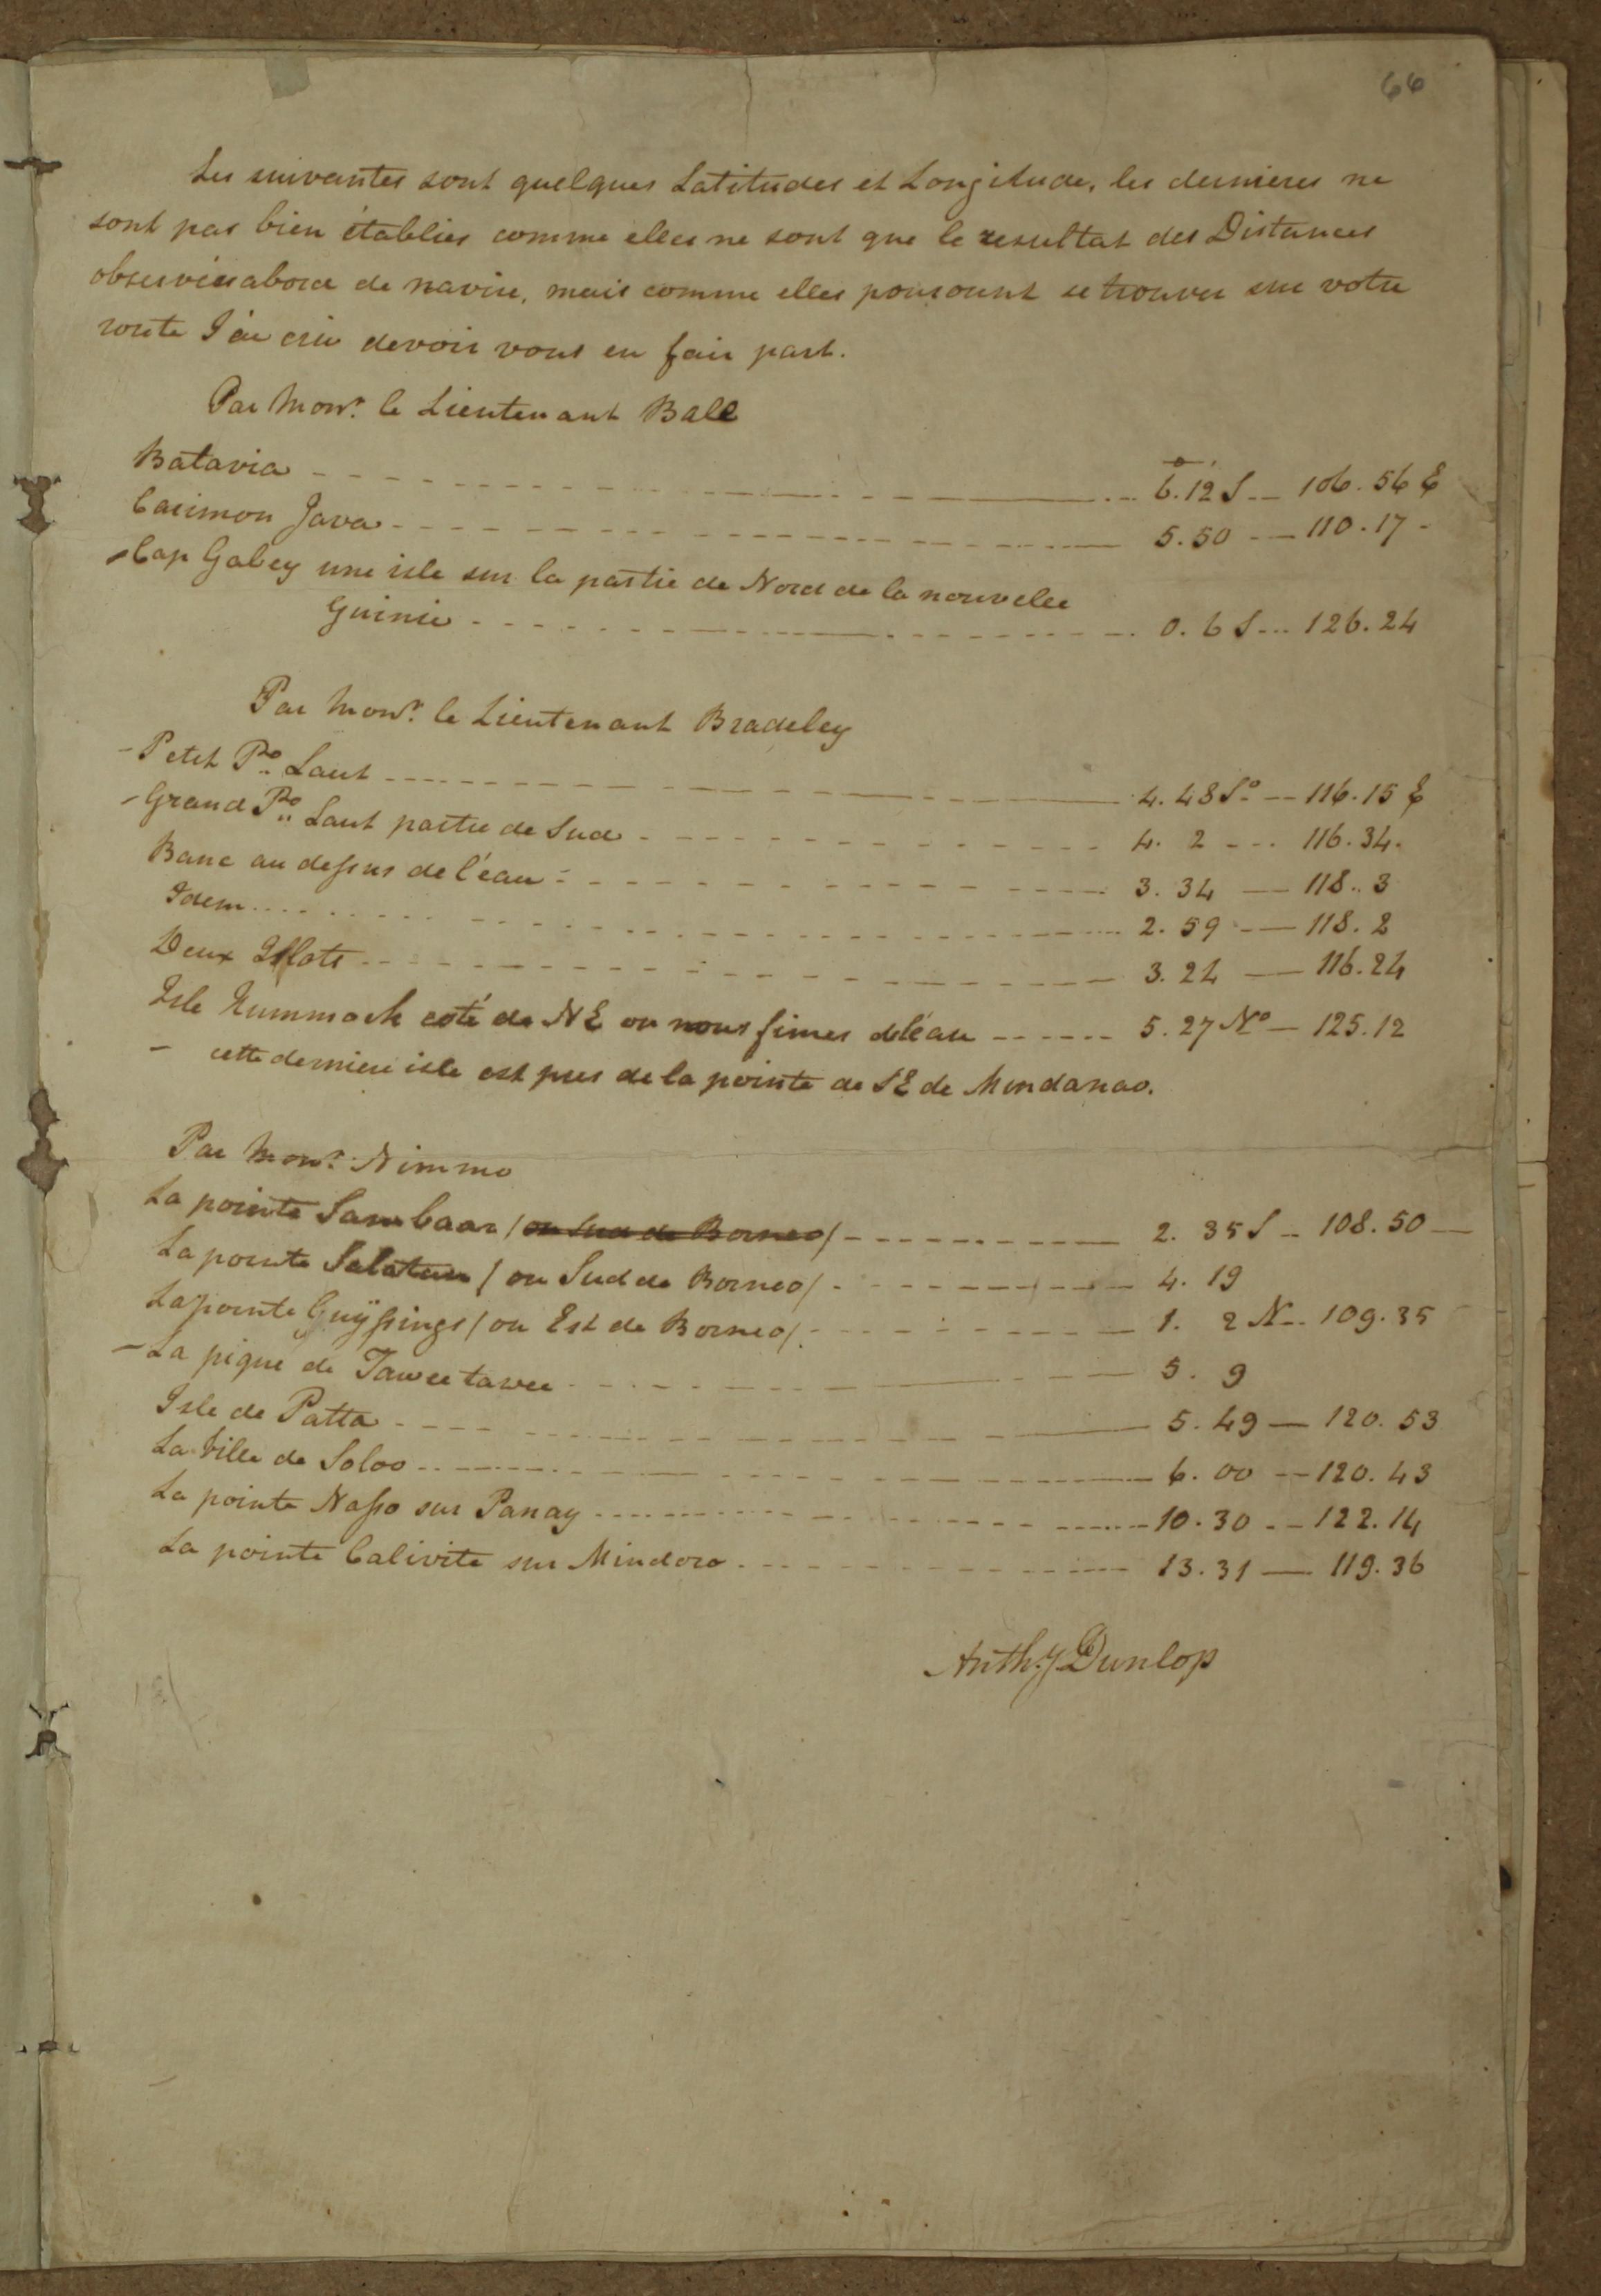 66
Les suivantes sont quelques Latitudes et Longitude, les dernieres ne
sont pas bien établies comme elles ne sont que le resultat des Distances
observées abord de navire, mais comme elles pouront se trouver sur votre
route J'ai cru devoir vous en fair part.
Par Monr. le Lieutenant Ball
Batavia 6.12 S 106.56 E
Carimon Java 5.50 110.17
Cap Gabey une isle sur la partie de Nord de la nouvelle
Guinie 0.6 S 126.24
Par Monr. le Lieutenant Bradeley
Petit Po. Laut 4.48 So 116.15 E
Grand Po. Laut partie de Sud 4. 2 116.34.
Banc au dessus de l'éau 3.34 118.3
Idem 2.59 118.2
Deux Islots 3.24 116.24
Isle Hummock coté de NE ou nous fimes de l'éau 5.27 No 125.12
cette derniere isle est pres de la pointe de SE de Mindanao.
Par Monr. Nimmo
La pointe Sambaar /ou Sud de Borneo/ 2.35 S 108.50
La pointe Salatan / ou Sud de Borneo/ 4.19
La pointe Guÿssings / ou Est de Borneo/ 1. 2 N 109.35
La pique de Tawee tawee 5. 9
Isle de Patta 5.49 120.53
La Ville de Soloo 6.00 120.43
La pointe Nasso sur Panay 10.30 122.14
La pointe Calivite sur Mindoro 13.31 119.36
Anthy Dunlop